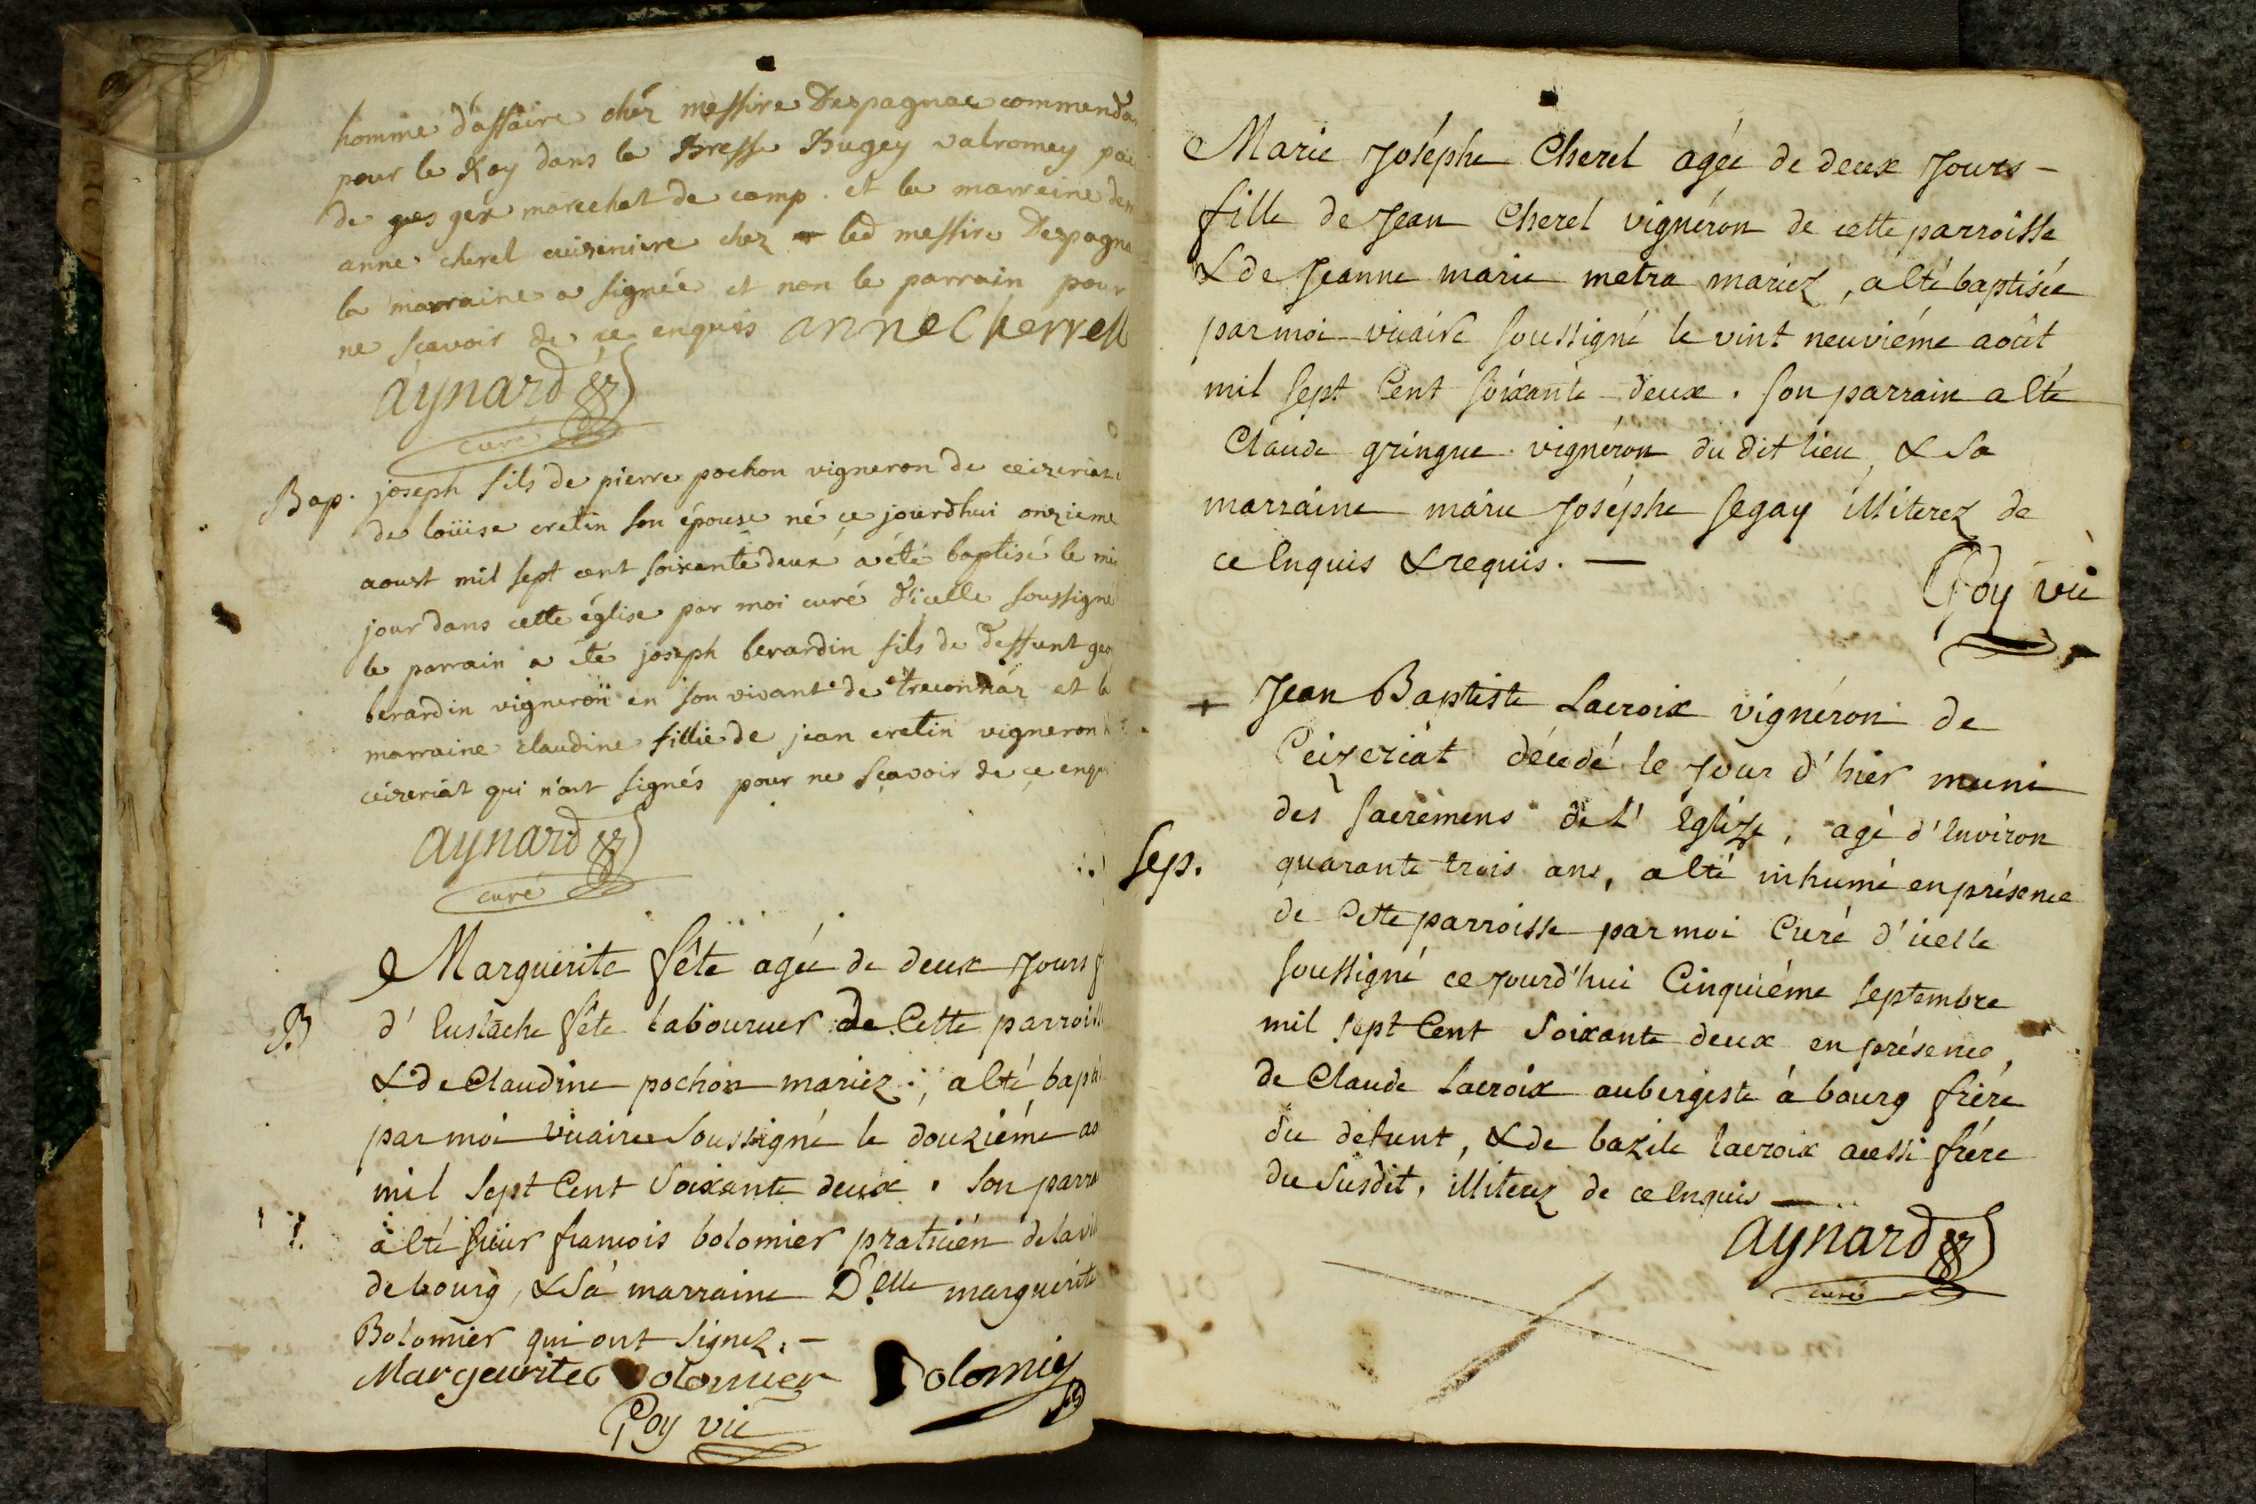 homme d'affaire chéz messire Despagnac commenda
pour le Roy dans la Bresse Bugey valromey païs
de gex marechal de camp. et la marreine de
anne cherel cuisiniere chez led messire Despagna
la marraine a signée et non le parrain pour
ne scavoir de ce enquis anne Cherrell
aynard
curé
Bap. joseph fils de pierre pochon vigneron de ceizeriat
de loüise cretin son épouse né ce jourdhui onzieme
aoust mil sept cent soixante deux a été baptisé le me
jour dans cette église par moi curé d'icelle soussigné
le parrain a été joseph berardin fils de deffunt
berardin vigneron en son vivant de treconnáz et la
marraine claudine fillie de jean cretin vigneron
ceizeriat qui n'ont signés pour ne sçavoir de ce enqui
aynard
curé
Marguerite fête agée de deux Jours f
B d'Eustache fête laboureur de Cette parroiss
& de Claudine pochon mariez, a Eté bapti
par moi vicaire soussigné le douziéme ao
mil sept Cent soixante deux. Son parra
a Eté sieur francois bolomier praticién de la vi
de bourg, & sa marraine D.elle marguerite
Bolomier qui ont signez. -
Margeurite Bolomier Bolomier
Poy vic
Marie Joséphe Cherel agée de deux Jours -
fille de Jean Cherel vignéron de cette parroisse
& de Jeanne marie metra mariez, a Eté baptisée
par moi vicaire soussigné le vint neuviéme août
mil sept Cent soixante deux. son parrain a Eté
Claude gringue vignéron du dit lieu, & sa
marraine marie Joséphe segay illiterez de
ce Enquis & requis. -
Poy vic
+ Jean Baptiste Lacroix vignéron de
Ceizeriat décedé le Jour d'hier muni
des sacremens de L'Eglize, agé d'Environ
Sep. quarante trois ans, a Eté inhumé en présence
de Cette parroisse par moi Curé d'icelle
soussigné ce Jourd'hui Cinquiéme septembre
mil sept Cent soixante deux en présence,
de Claude Lacroix aubergiste à bourg frére
du defunt, & de bazile lacroix aussi frére
du susdit, illiterez de ce Enquis -
aynard
curé